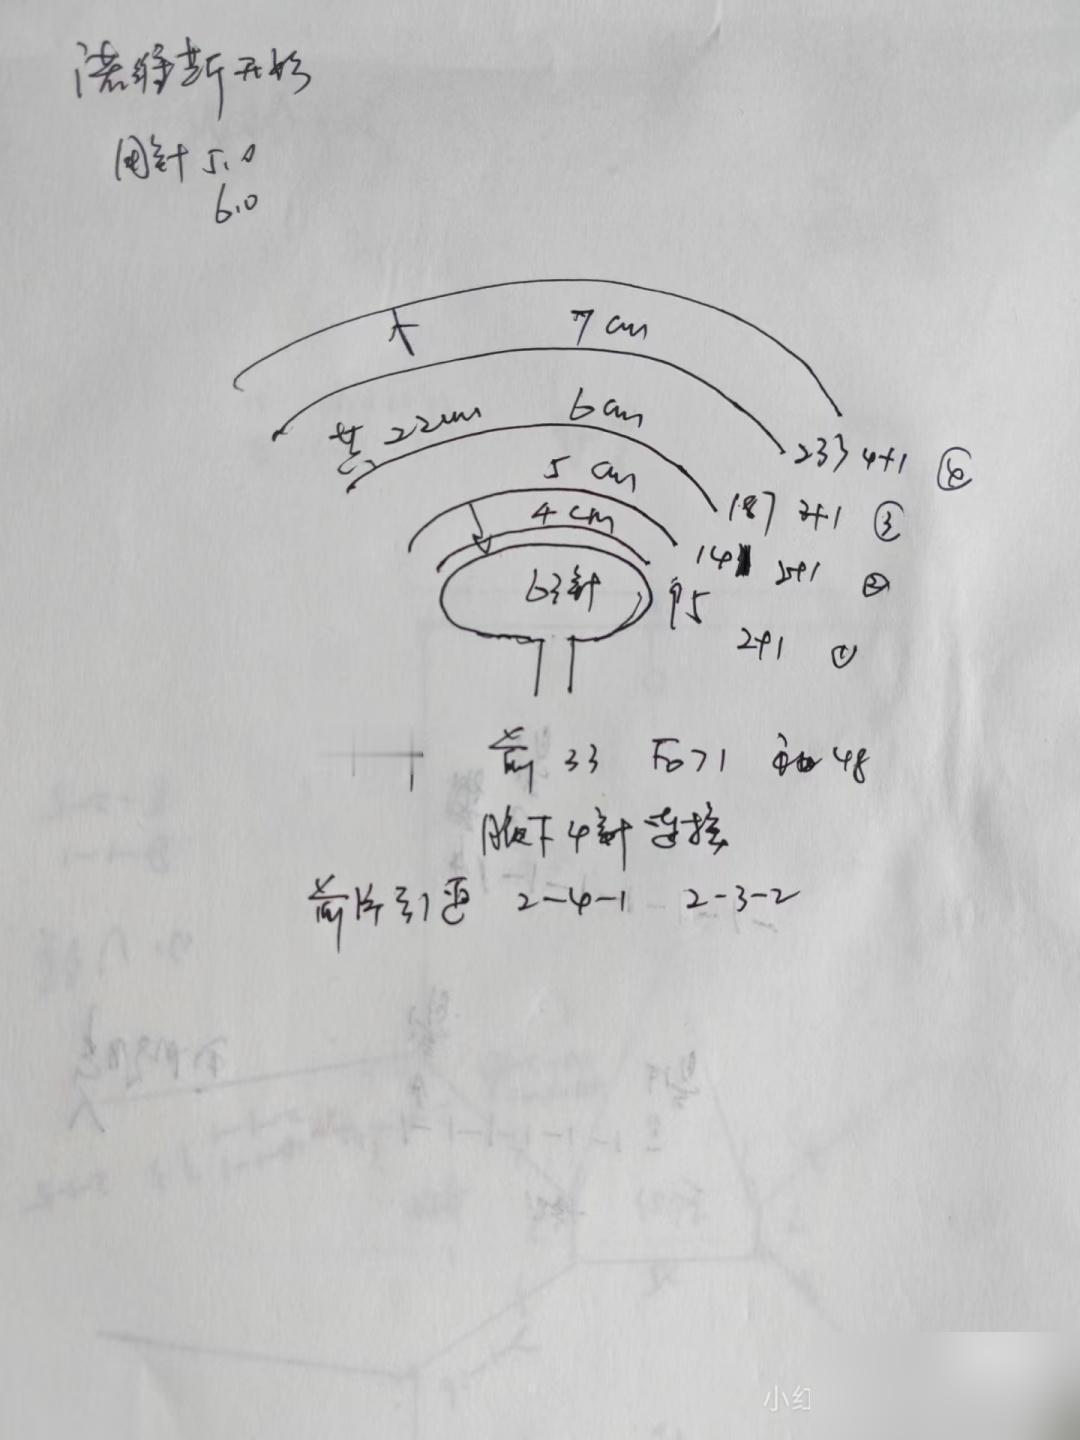 诺维斯开衫
用针 5.0
6.0
7 cm
共 22cm
6cm
5 cm
4 cm
63针
233 4+1 ④
187 3+1 ③
141 2+1 ②
95
2+1 ①
前 33 后71 袖 48
腋下4针 连接
前片引退 2-4-1 2-3-2
小红